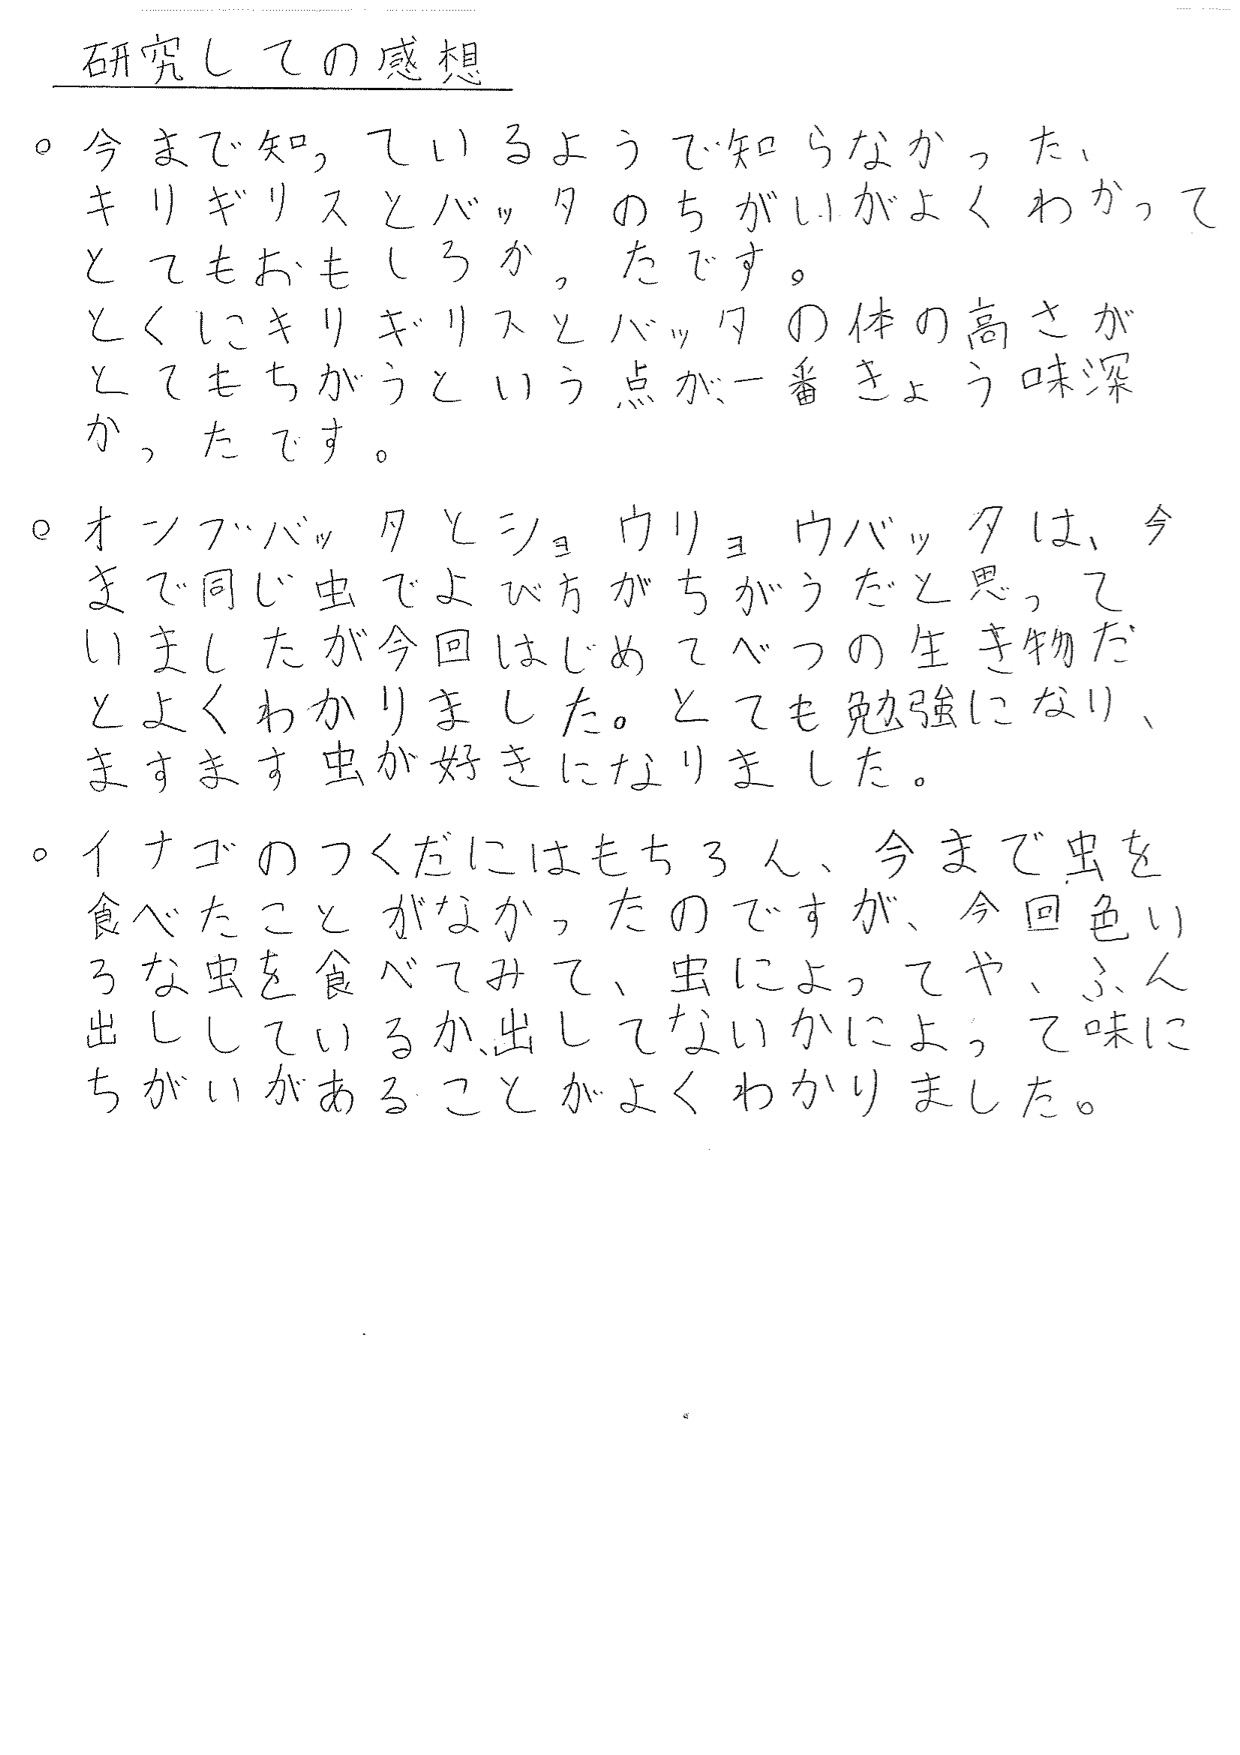 研究しての感想
○ 今まで知っているようで知らなかった、
キリギリスとバッタのちがいがよくわかって
とてもおもしろかったです。
とくにキリギリスとバッタの体の高さが
とてもちがうという点が、一番きょう味深
かったです。
○ オンブバッタとショウリョウバッタは、今
まで同じ虫でよび方がちがうだと思って
いましたが今回はじめてべつの生き物だ
とよくわかりました。とても勉強になり、
ますます虫が好きになりました。
○ イナゴのつくだにはもちろん、今まで虫を
食べたことがなかったのですが、今回色い
ろな虫を食べてみて、虫によってや、ふん
出ししているか、出してないかによって味に
ちがいがあることがよくわかりました。